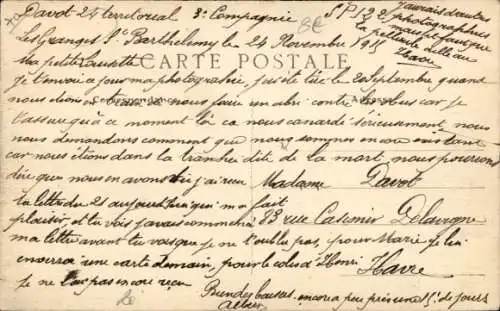 Davot 24 territorial 3e Compagnie S P 132
j'aurais d'autres
photographies
Les Granges St Barthelemy le 24 Novembre 1915
la petite
Havre
Ma petite
CARTE POSTALE
je t'envoie a jour ma photographie, le 20 Septembre quand
nous étions a nous faire un abri contre les obus car je
Correspondance
Adresse
t'assure qu'à ce moment là ca nous canardé sérieusement, nous
nous demandons comment que nous sommes encore existant
car nous étions dans la tranchée dit de la mort, nous pouvons
dire que nous en avons j'ai recu
Madame Davot
ta lettre du 21 aujourd'hui qui ma fait
plaisir, et tu vois j'avais commencé
83 rue Casimir Delavigne
ma lettre avant tu vois que je ne t'oublie pas, pour Marie je lui
enverrai une carte demain, pour le colis d'Henri
Havre
je ne l'ai pas encore reçu
Bien des baisers encore a peu près une 15e de jours
8E
2e